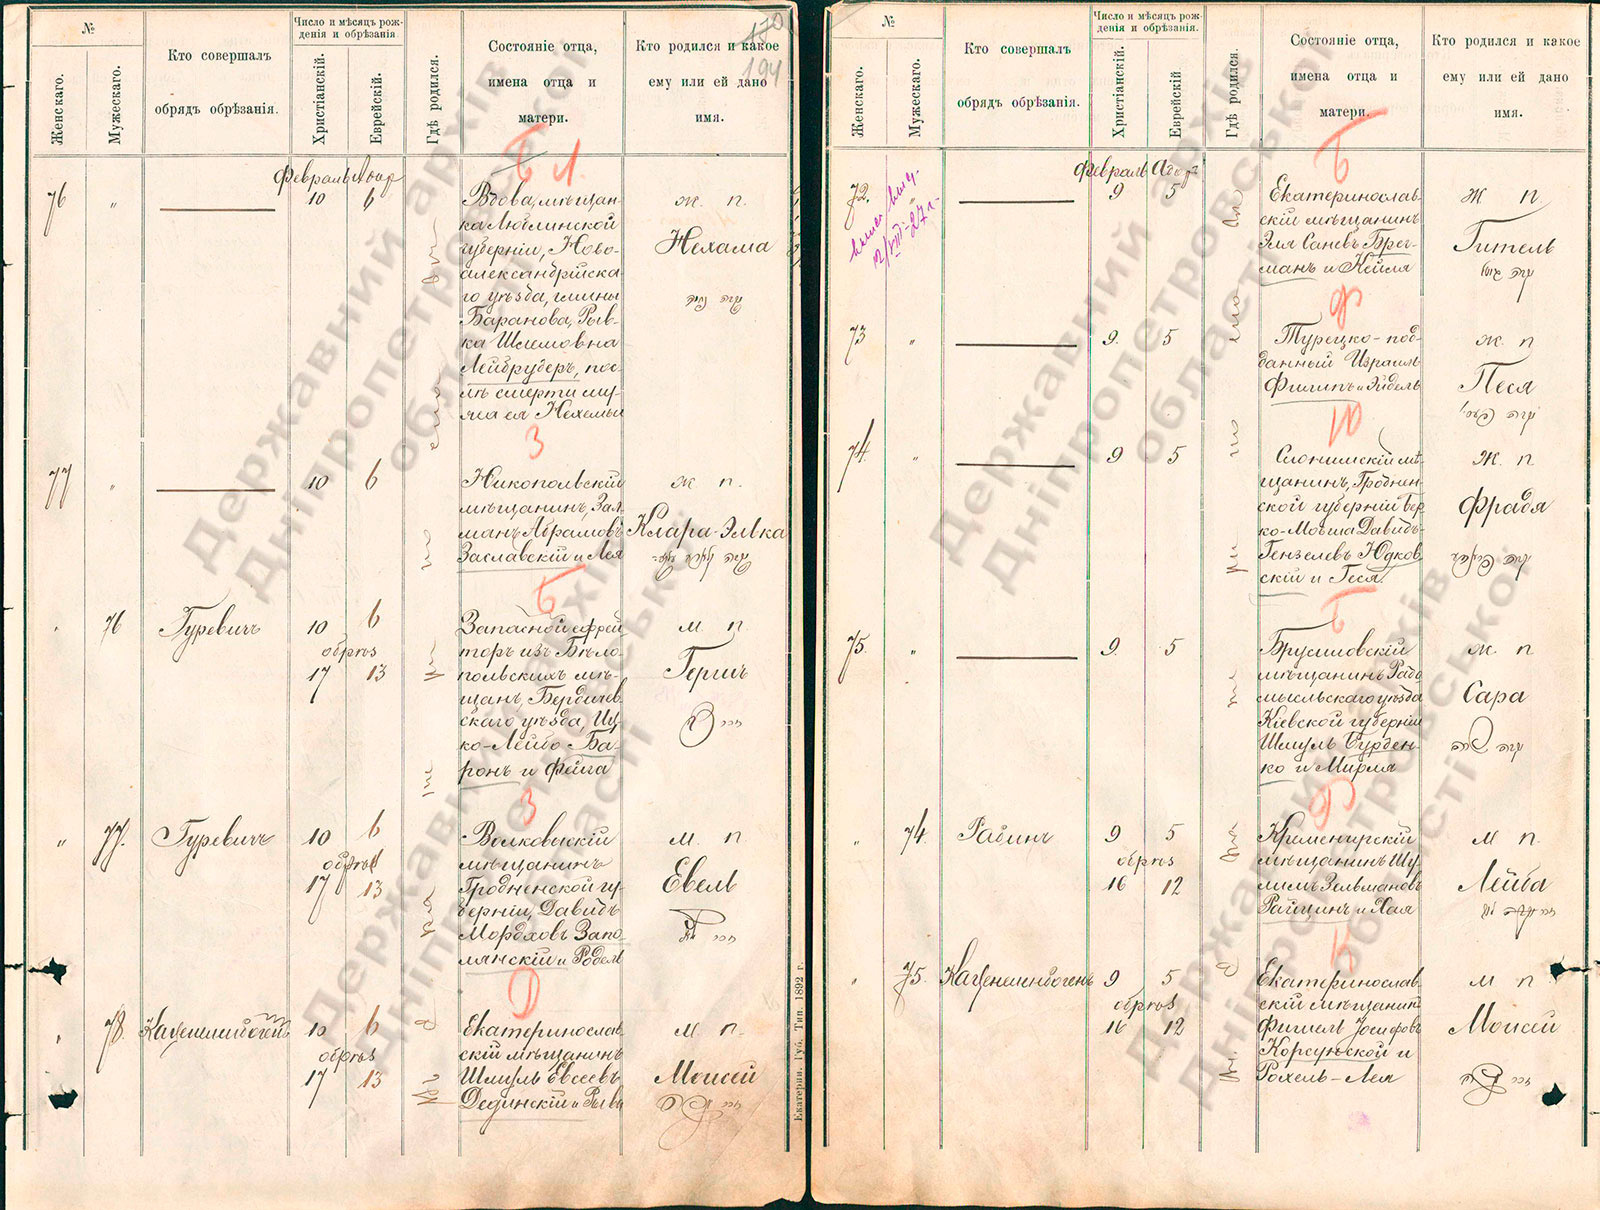 170
194
№
Женскаго.
Мужескаго.
Кто совершалъ
обрядъ обрѣзанія.
Число и мѣсяцъ рож-
денія и обрѣзанія.
Христіанскій.
Еврейскій.
Гдѣ родился.
Состояніе отца,
имена отца и
матери.
Кто родился и какое
ему или ей дано
имя.
Февраль Адар
76 " 10 6
Вдова, мѣщан-
ка Люблинской
губерніи, Ново-
александрійска-
го уѣзда, гмины
Баранова, Рыв-
ка Шлемовна
Лейбруберъ, пос-
лѣ смерти му-
жа ея Нехемьи
ж. п.
Нехама
З
77 " 10 6
Никопольскій
мѣщанинъ, Зал-
манъ Абрамовъ
Заславскій и Лея
ж п.
Клара-Элька
Б
76 Гуревичъ 10 6
обрѣз
17 13
Запасной ефрей
торъ изъ Бѣло-
польскихъ мѣ-
щанъ, Бердичев
скаго уѣзда, Иц-
ко-Лейбо Ба-
ронъ и Фейга
м. п.
Гершъ
З
" 77. Гуревичъ 10 6
обрѣз
17 13
Волковыскій
мѣщанинъ
Гродненской гу-
берніи, Давидъ
Мордховъ Запо-
лянскій и Родель
м. п.
Евель
Д
" 78. Каценеленбогенъ 10 6
обрѣз
17 13
Екатеринослав
скій мѣщанинъ
Шмуль Евсеевъ
Дединскій и Рыва
м п.
Моисей
Екатерин. Губ. Тип. 1892 г.
№
Женскаго.
Мужескаго.
Кто совершалъ
обрядъ обрѣзанія.
Число и мѣсяцъ рож-
денія и обрѣзанія.
Христіанскій.
Еврейскій
Гдѣ родился.
Состояніе отца,
имена отца и
матери.
Кто родился и какое
ему или ей дано
имя.
Февраль Адар
Б
72. " 9 5
12/VIII-27 г.
Екатеринослав-
скій мѣщанинъ
Эля Саневъ Брег-
манъ и Кейля
ж п.
Гитель
Ф
73 " 9. 5
Турецко-под-
данный Израиль
Филипъ и Эйдель
ж. п
Песя
Ю
74. " 9 5
Слонимскій мѣ-
щанинъ, Гроднен-
ской губерніи Бер
ко-Мовша Давидъ-
Гензелевъ Юдков
скій и Геся.
ж. п
Фрадя
75. " 9. 5
Брусиловскій
мѣщанинъ Радо
мысльскаго уѣзда
Кіевской губерніи
Шмуль Бурден-
ко и Мирля
ж п
Сара
" 74. Рабинъ 9 5
обрѣз
16 12
Кременчугскій
мѣщанинъ Шу-
лимъ Зельмановъ
Райцинъ и Хая
м п
Лейба
" 75. Каценеленбогенъ 9 5
обрѣз
16 12
Екатеринослав
скій мѣщанинъ
Фишель Іосифовъ
Корсунской и
Рохель-Лея
м п
Моисей
Державний архів
Дніпропетровської
області